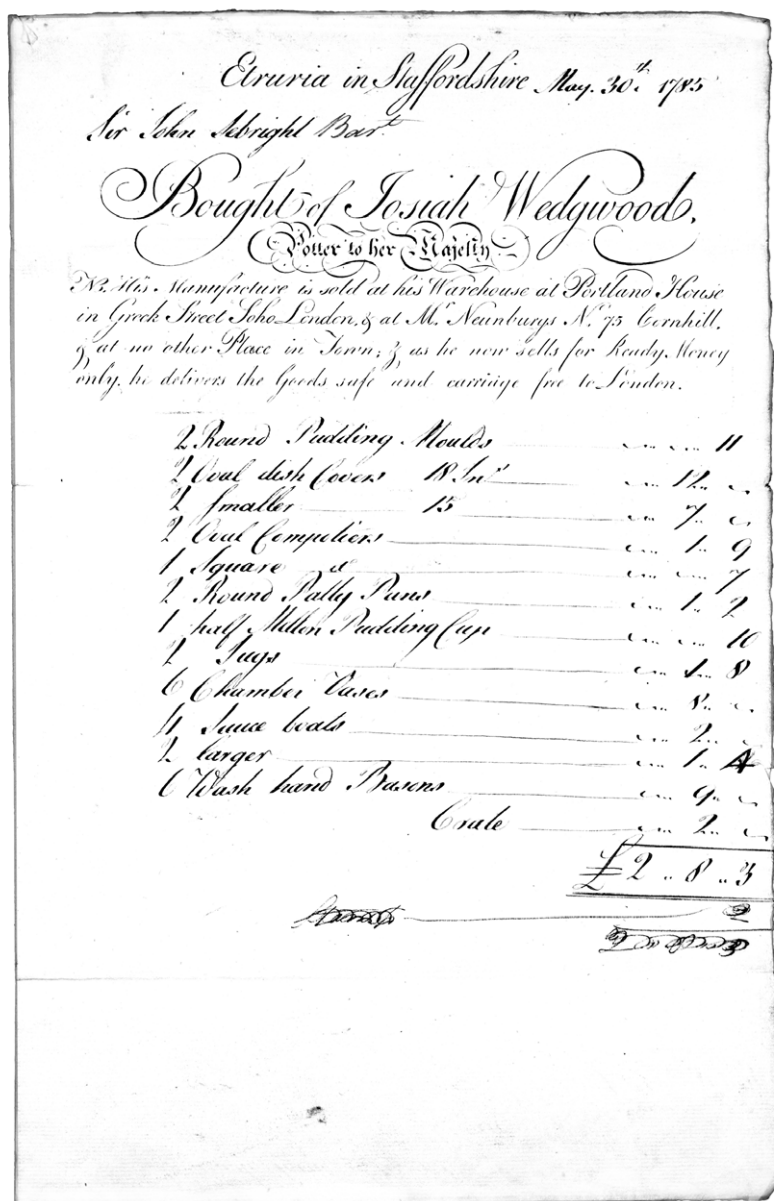 Etruria in Staffordshire May. 30th. 1785
Sir John Sebright Bart.
Bought of Josiah Wedgwood.
Potter to her Majesty.
NB. His Manufacture is sold at his Warehouse at Portland House
in Greek Street Soho London, & at Mr. Newnburys No. 75 Cornhill,
& at no other Place in Town; & as he now sells for Ready Money
only, he delivers the Goods safe and carriage free to London.
2 Round Pudding Moulds 11
2 Oval dish Covers 18 Ins 12
2 Smaller 15 7
2 Oval Compotiers 1 .. 9
1 Square do 7
2 Round Patty Pans 1 .. 2
1 half Mellon Pudding Cup 10
2 Jugs 1 .. 8
6 Chamber Vases 8
4 Sauce boats 2
2 larger 1 .. 4
6 Wash hand Basons 9
Crate 2
£2 .. 8 .. 3